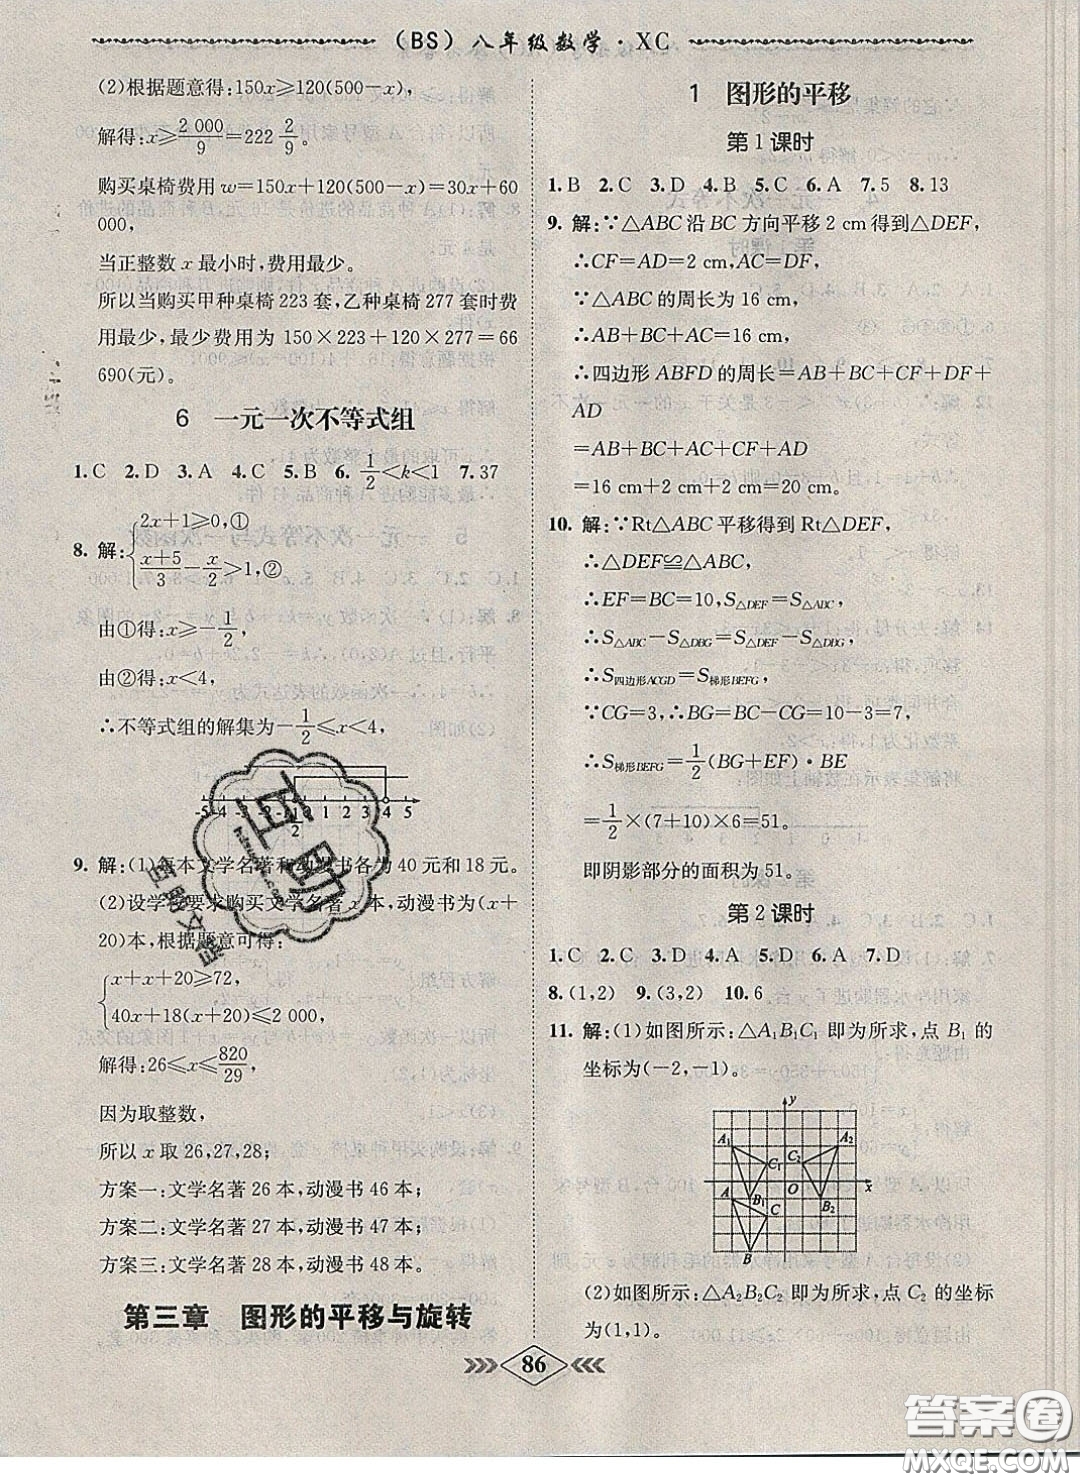 (BS) 八年级数学·XC
(2)根据题意得:150x≥120(500-x),
解得:x≥2 000/9=222 2/9。
购买桌椅费用 w=150x+120(500-x)=30x+60
000,
当正整数 x 最小时,费用最少。
所以当购买甲种桌椅 223 套,乙种桌椅 277 套时费
用最少,最少费用为 150×223+120×277=66
690(元)。
6 一元一次不等式组
1.C 2.D 3.A 4.C 5.B 6.1/2<k<1 7.37
8.解:{2x+1≥0,①
(x+5)/3-x/2>1,②
由①得:x≥-1/2,
由②得:x<4,
∴不等式组的解集为-1/2≤x<4,
-5 -4 -3 -2 -1 0 1 2 3 4 5
9.解:(1)每本文学名著和动漫书各为 40 元和 18 元。
(2)设学校要求购买文学名著 x 本,动漫书为(x+
20)本,根据题意可得:
{x+x+20≥72,
40x+18(x+20)≤2 000,
解得:26≤x≤820/29,
因为取整数,
所以 x 取 26,27,28;
方案一:文学名著 26 本,动漫书 46 本;
方案二:文学名著 27 本,动漫书 47 本;
方案三:文学名著 28 本,动漫书 48 本。
第三章 图形的平移与旋转
1 图形的平移
第 1 课时
1.B 2.C 3.D 4.B 5.C 6.A 7.5 8.13
9.解:∵△ABC 沿 BC 方向平移 2 cm 得到△DEF,
∴CF=AD=2 cm,AC=DF,
∵△ABC 的周长为 16 cm,
∴AB+BC+AC=16 cm,
∴四边形 ABFD 的周长=AB+BC+CF+DF+
AD
=AB+BC+AC+CF+AD
=16 cm+2 cm+2 cm=20 cm。
10.解:∵Rt△ABC 平移得到 Rt△DEF,
∴△ABC≌△DEF,
∴EF=BC=10,S△DEF=S△ABC,
∴S△ABC-S△DBG=S△DEF-S△DBG,
∴S四边形ACGD=S梯形BEFG,
∵CG=3,∴BG=BC-CG=10-3=7,
∴S梯形BEFG=1/2(BG+EF)·BE
=1/2×(7+10)×6=51。
即阴影部分的面积为 51。
第 2 课时
1.C 2.C 3.D 4.A 5.D 6.A 7.D
8.(1,2) 9.(3,2) 10.6
11.解:(1)如图所示:△A₁B₁C₁ 即为所求,点 B₁ 的
坐标为(-2,-1)。
y
A₁ A₂
C₁ C₂
B₁ O B₂ x
A C
B
(2)如图所示:△A₂B₂C₂ 即为所求,点 C₂ 的坐标
为(1,1)。
86
答案圈
MXQE.COM